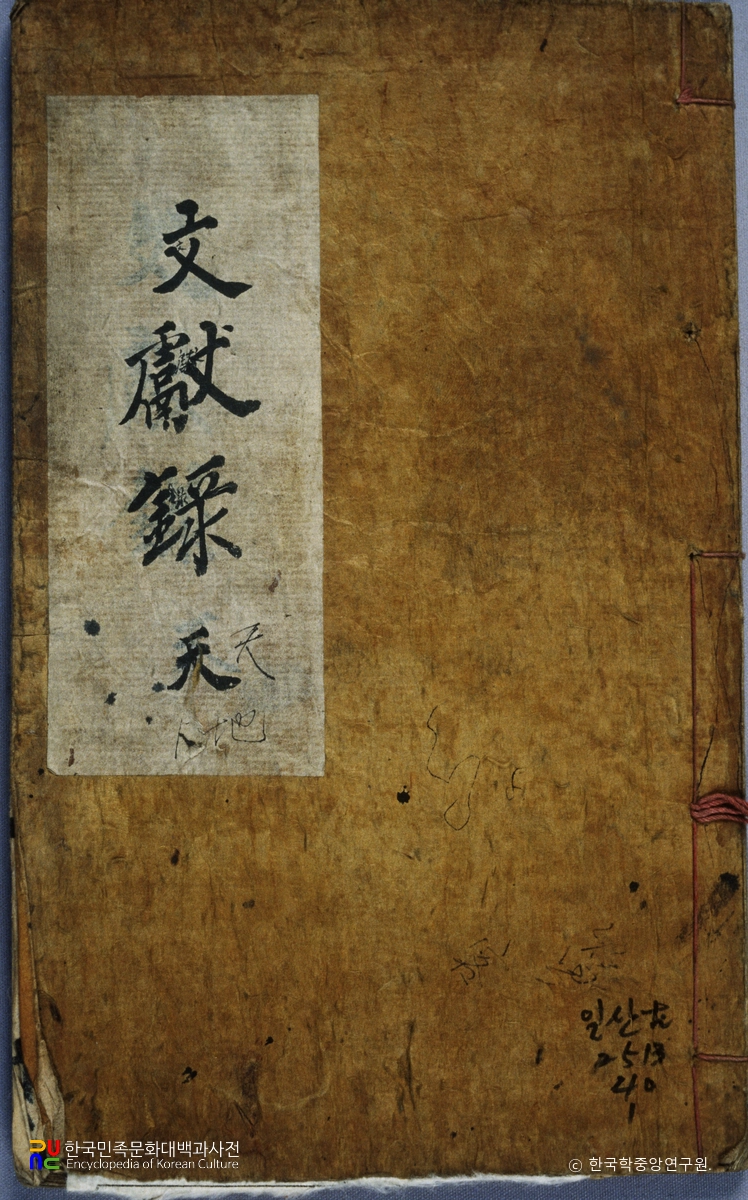 文獻錄 天
天
地
일산古
2513
40
1
한국민족문화대백과사전
Encyclopedia of Korean Culture
© 한국학중앙연구원